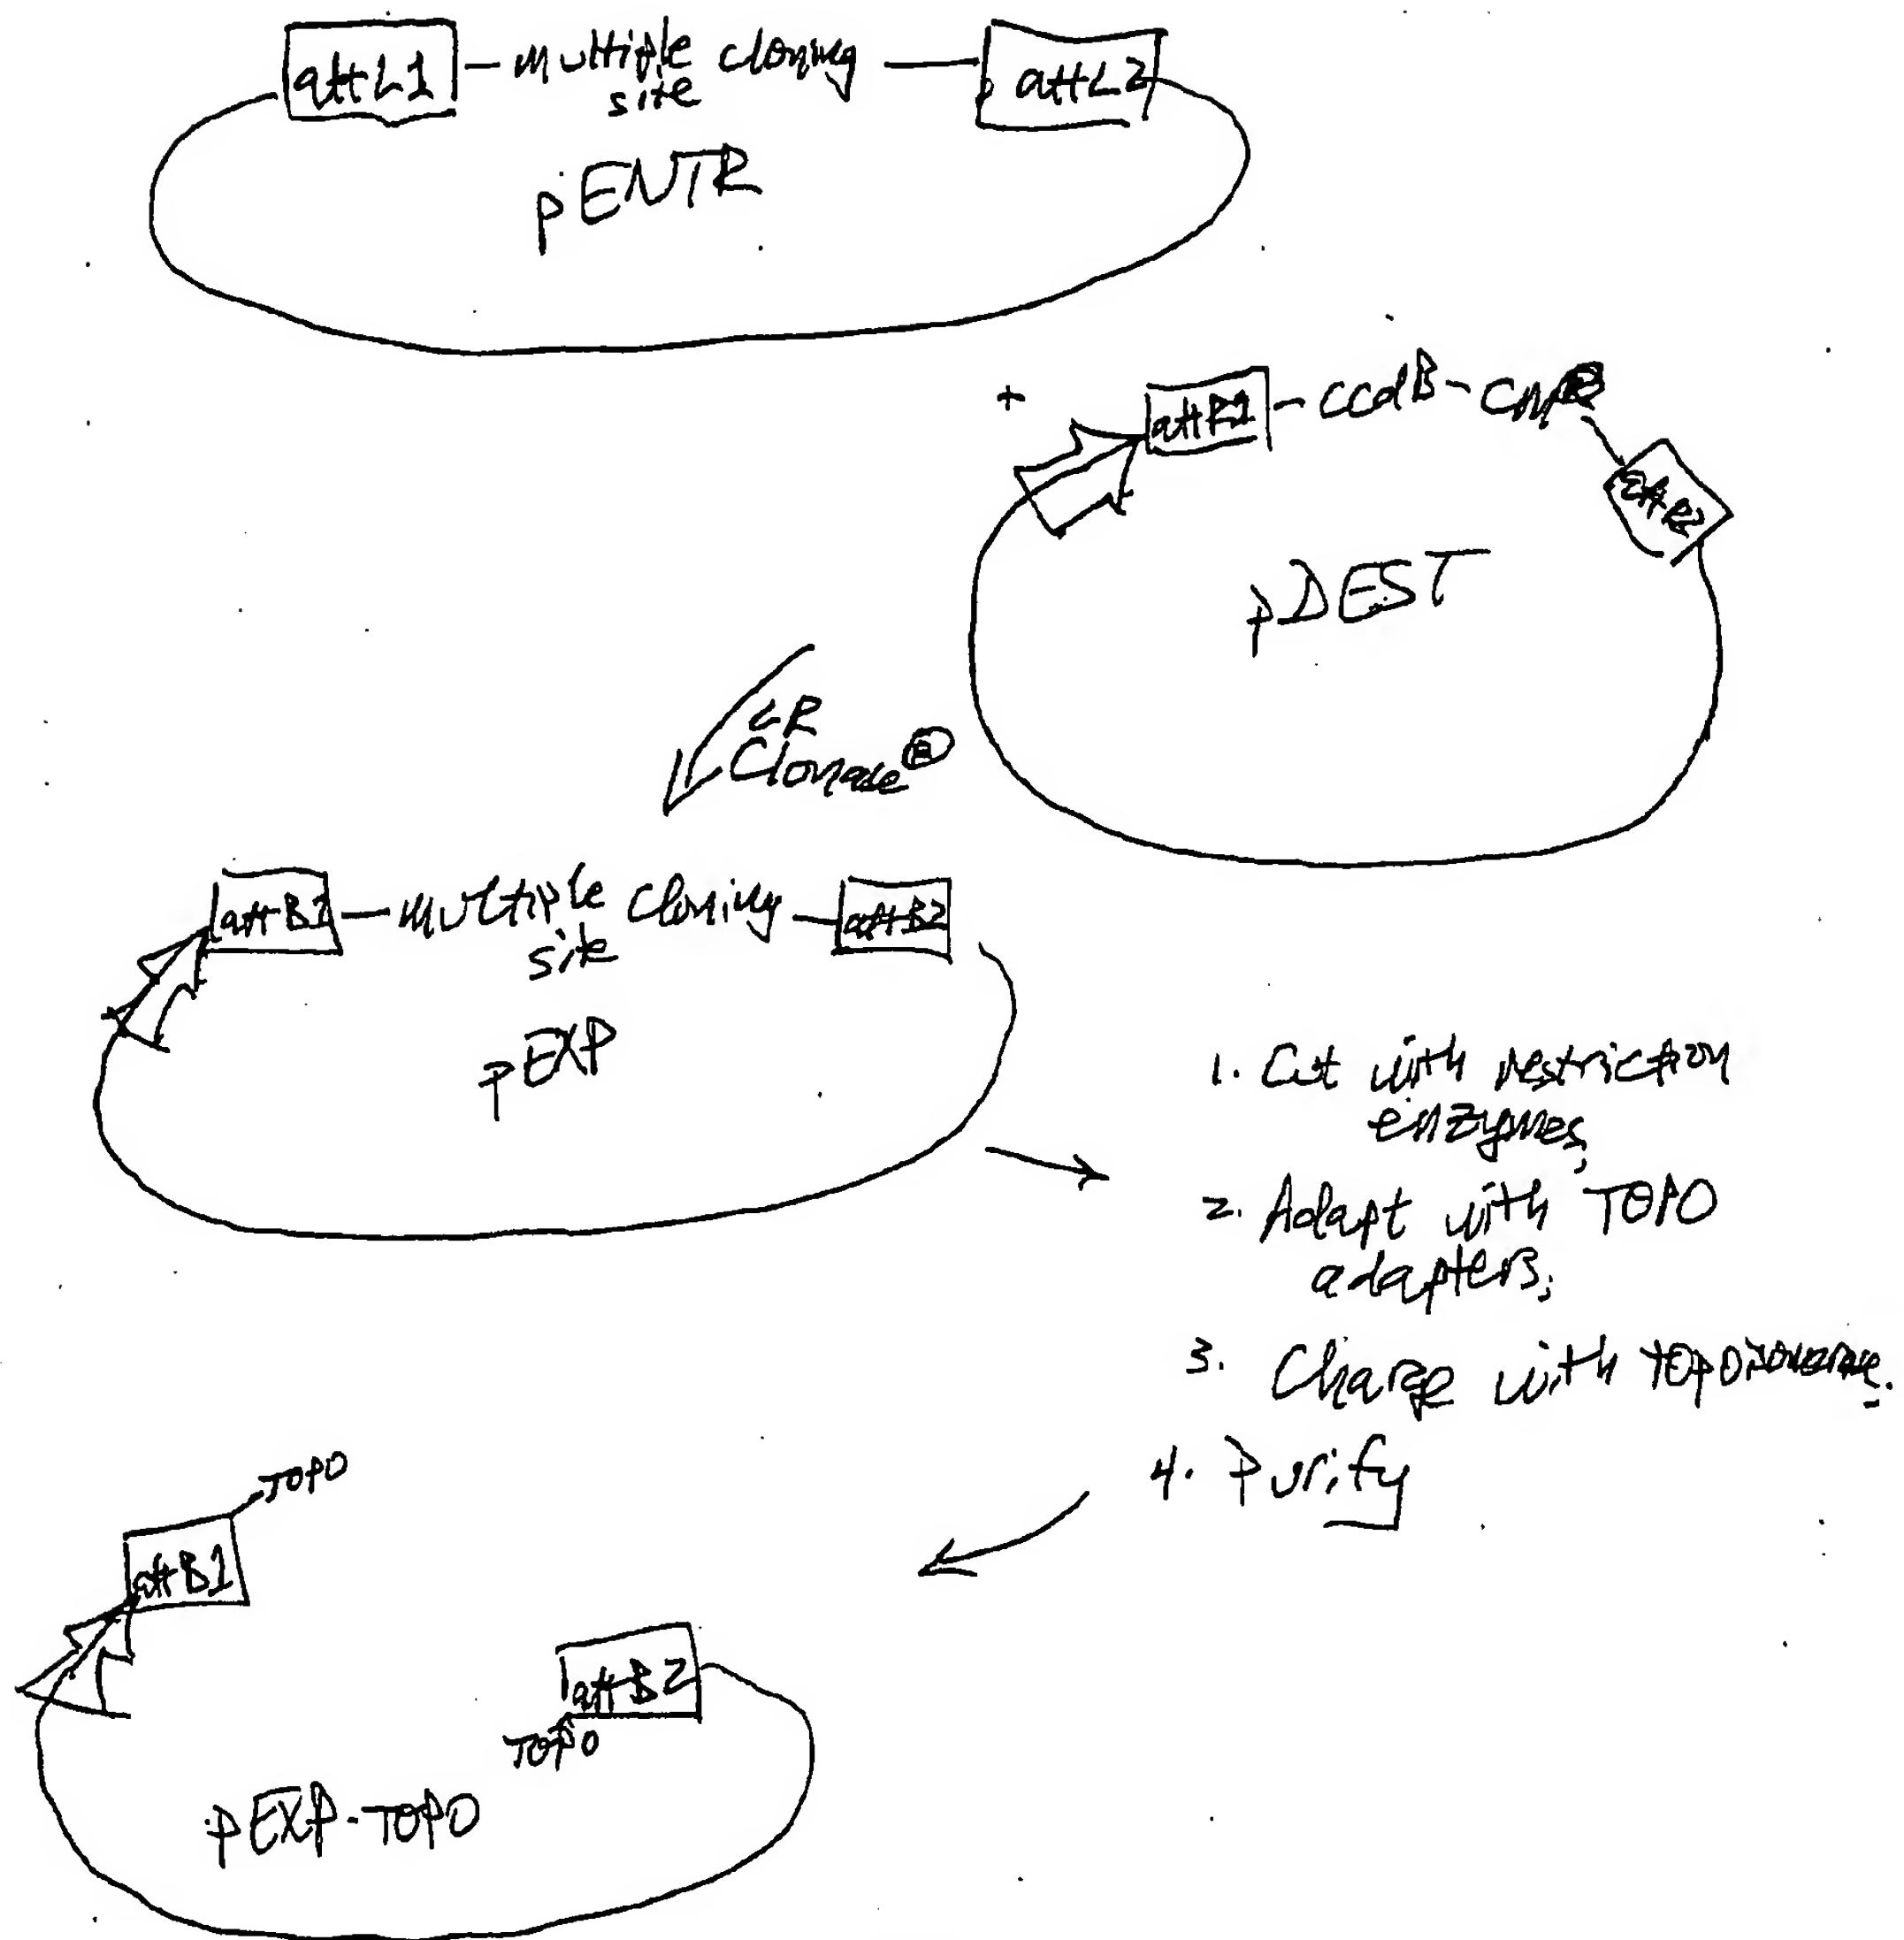 attL1 — Multiple cloning — attL2
site
pENTR
+
attR1 - ccdB - CmR
attR2
pDEST
LR
Clonase®
attB1 — Multiple cloning — attB2
site
pEXP
1. Cut with restriction
enzymes,
2. Adapt with TOPO
adapters,
3. Charge with topoisomerase.
4. Purify
TOPO
attB1
attB2
TOPO
pEXP-TOPO